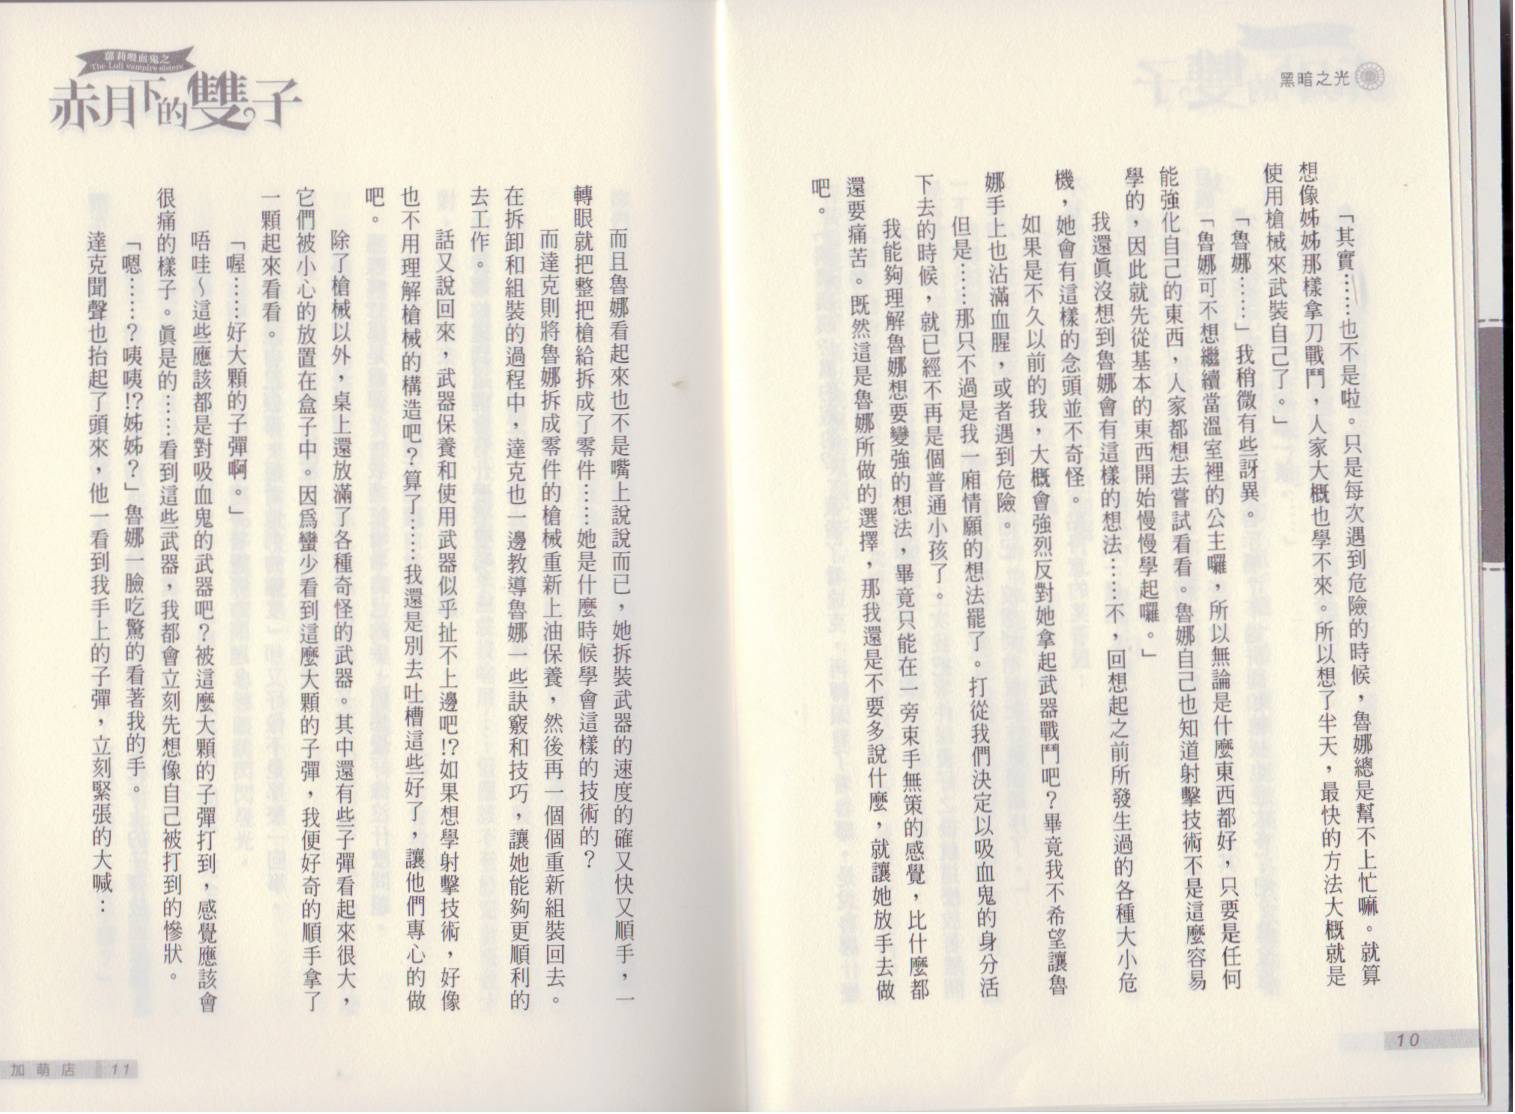 黑暗之光
「其實……也不是啦。只是每次遇到危險的時候，魯娜總是幫不上忙嘛。就算
想像姊姊那樣拿刀戰鬥，人家大概也學不來。所以想了半天，最快的方法大概就是
使用槍械來武裝自己了。」
「魯娜……」我稍微有些訝異。
「魯娜可不想繼續當溫室裡的公主囉，所以無論是什麼東西都好，只要是任何
能強化自己的東西，人家都想去嘗試看看。魯娜自己也知道射擊技術不是這麼容易
學的，因此就先從基本的東西開始慢慢學起囉。」
我還真沒想到魯娜會有這樣的想法……不，回想起之前所發生過的各種大小危
機，她會有這樣的念頭並不奇怪。
如果是不久以前的我，大概會強烈反對她拿起武器戰鬥吧？畢竟我不希望讓魯
娜手上也沾滿血腥，或者遇到危險。
但是……那只不過是我一廂情願的想法罷了。打從我們決定以吸血鬼的身分活
下去的時候，就已經不再是個普通小孩了。
我能夠理解魯娜想要變強的想法，畢竟只能在一旁束手無策的感覺，比什麼都
還要痛苦。既然這是魯娜所做的選擇，那我還是不要多說什麼，就讓她放手去做
吧。
10
蘿莉吸血鬼之
The Loli vampire sisters
赤月下的雙子
而且魯娜看起來也不是嘴上說說而已，她拆裝武器的速度的確又快又順手，一
轉眼就把整把槍給拆成了零件……她是什麼時候學會這樣的技術的？
而達克則將魯娜拆成零件的槍械重新上油保養，然後再一個個重新組裝回去。
在拆卸和組裝的過程中，達克也一邊教導魯娜一些訣竅和技巧，讓她能夠更順利的
去工作。
話又說回來，武器保養和使用武器似乎扯不上邊吧!?如果想學射擊技術，好像
也不用理解槍械的構造吧？算了……我還是別去吐槽這些好了，讓他們專心的做
吧。
除了槍械以外，桌上還放滿了各種奇怪的武器。其中還有些子彈看起來很大，
它們被小心的放置在盒子中。因為蠻少看到這麼大顆的子彈，我便好奇的順手拿了
一顆起來看看。
「喔……好大顆的子彈啊。」
唔哇～這些應該都是對吸血鬼的武器吧？被這麼大顆的子彈打到，感覺應該會
很痛的樣子。真是的……看到這些武器，我都會立刻先想像自己被打到的慘狀。
「嗯……？咦咦!?姊姊？」魯娜一臉吃驚的看著我的手。
達克聞聲也抬起了頭來，他一看到我手上的子彈，立刻緊張的大喊：
加萌店
11